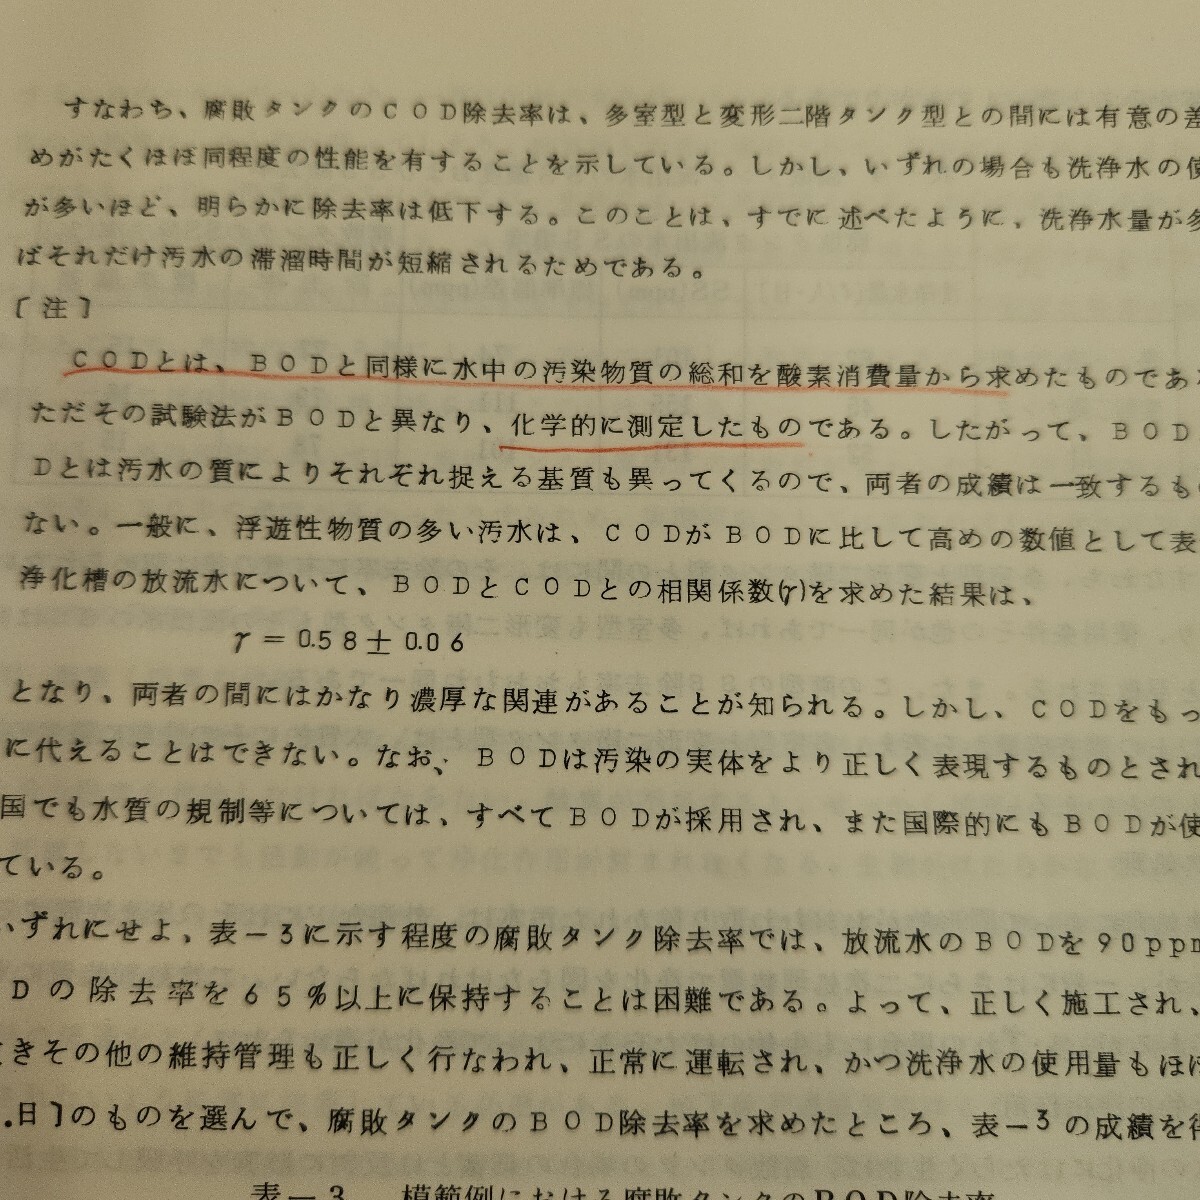 すなわち、腐敗タンクのCOD除去率は、多室型と変形二階タンク型との間には有意の差
めがたくほぼ同程度の性能を有することを示している。しかし、いずれの場合も洗浄水の使
が多いほど、明らかに除去率は低下する。このことは、すでに述べたように、洗浄水量が多
ばそれだけ汚水の滞溜時間が短縮されるためである。
〔注〕
CODとは、BODと同様に水中の汚染物質の総和を酸素消費量から求めたものであ
ただその試験法がBODと異なり、化学的に測定したものである。したがって、BOD
Dとは汚水の質によりそれぞれ捉える基質も異ってくるので、両者の成績は一致するも
ない。一般に、浮遊性物質の多い汚水は、CODがBODに比して高めの数値として表
浄化槽の放流水について、BODとCODとの相関係数(γ)を求めた結果は、
γ=0.58±0.06
となり、両者の間にはかなり濃厚な関連があることが知られる。しかし、CODをもっ
に代えることはできない。なお、BODは汚染の実体をより正しく表現するものとされ
国でも水質の規制等については、すべてBODが採用され、また国際的にもBODが使
ている。
いずれにせよ、表-3に示す程度の腐敗タンク除去率では、放流水のBODを90ppm
Dの除去率を65%以上に保持することは困難である。よって、正しく施工され、
きその他の維持管理も正しく行なわれ、正常に運転され、かつ洗浄水の使用量もほぼ
.日〕のものを選んで、腐敗タンクのBOD除去率を求めたところ、表-3の成績を得
表-3 模範例における腐敗タンクのBOD除去率